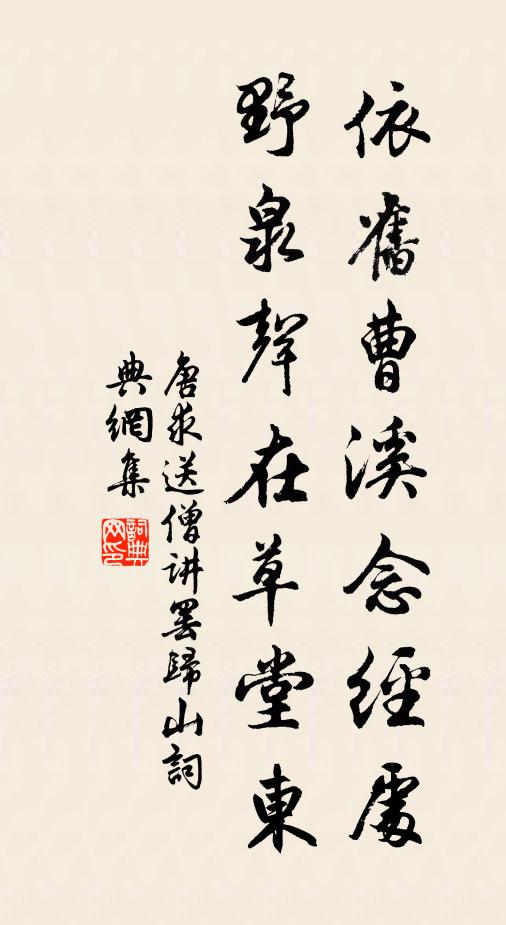 依舊曹溪念經處
野泉聲在草堂東
唐求送僧講罷歸山詞
典網集
詞典網印